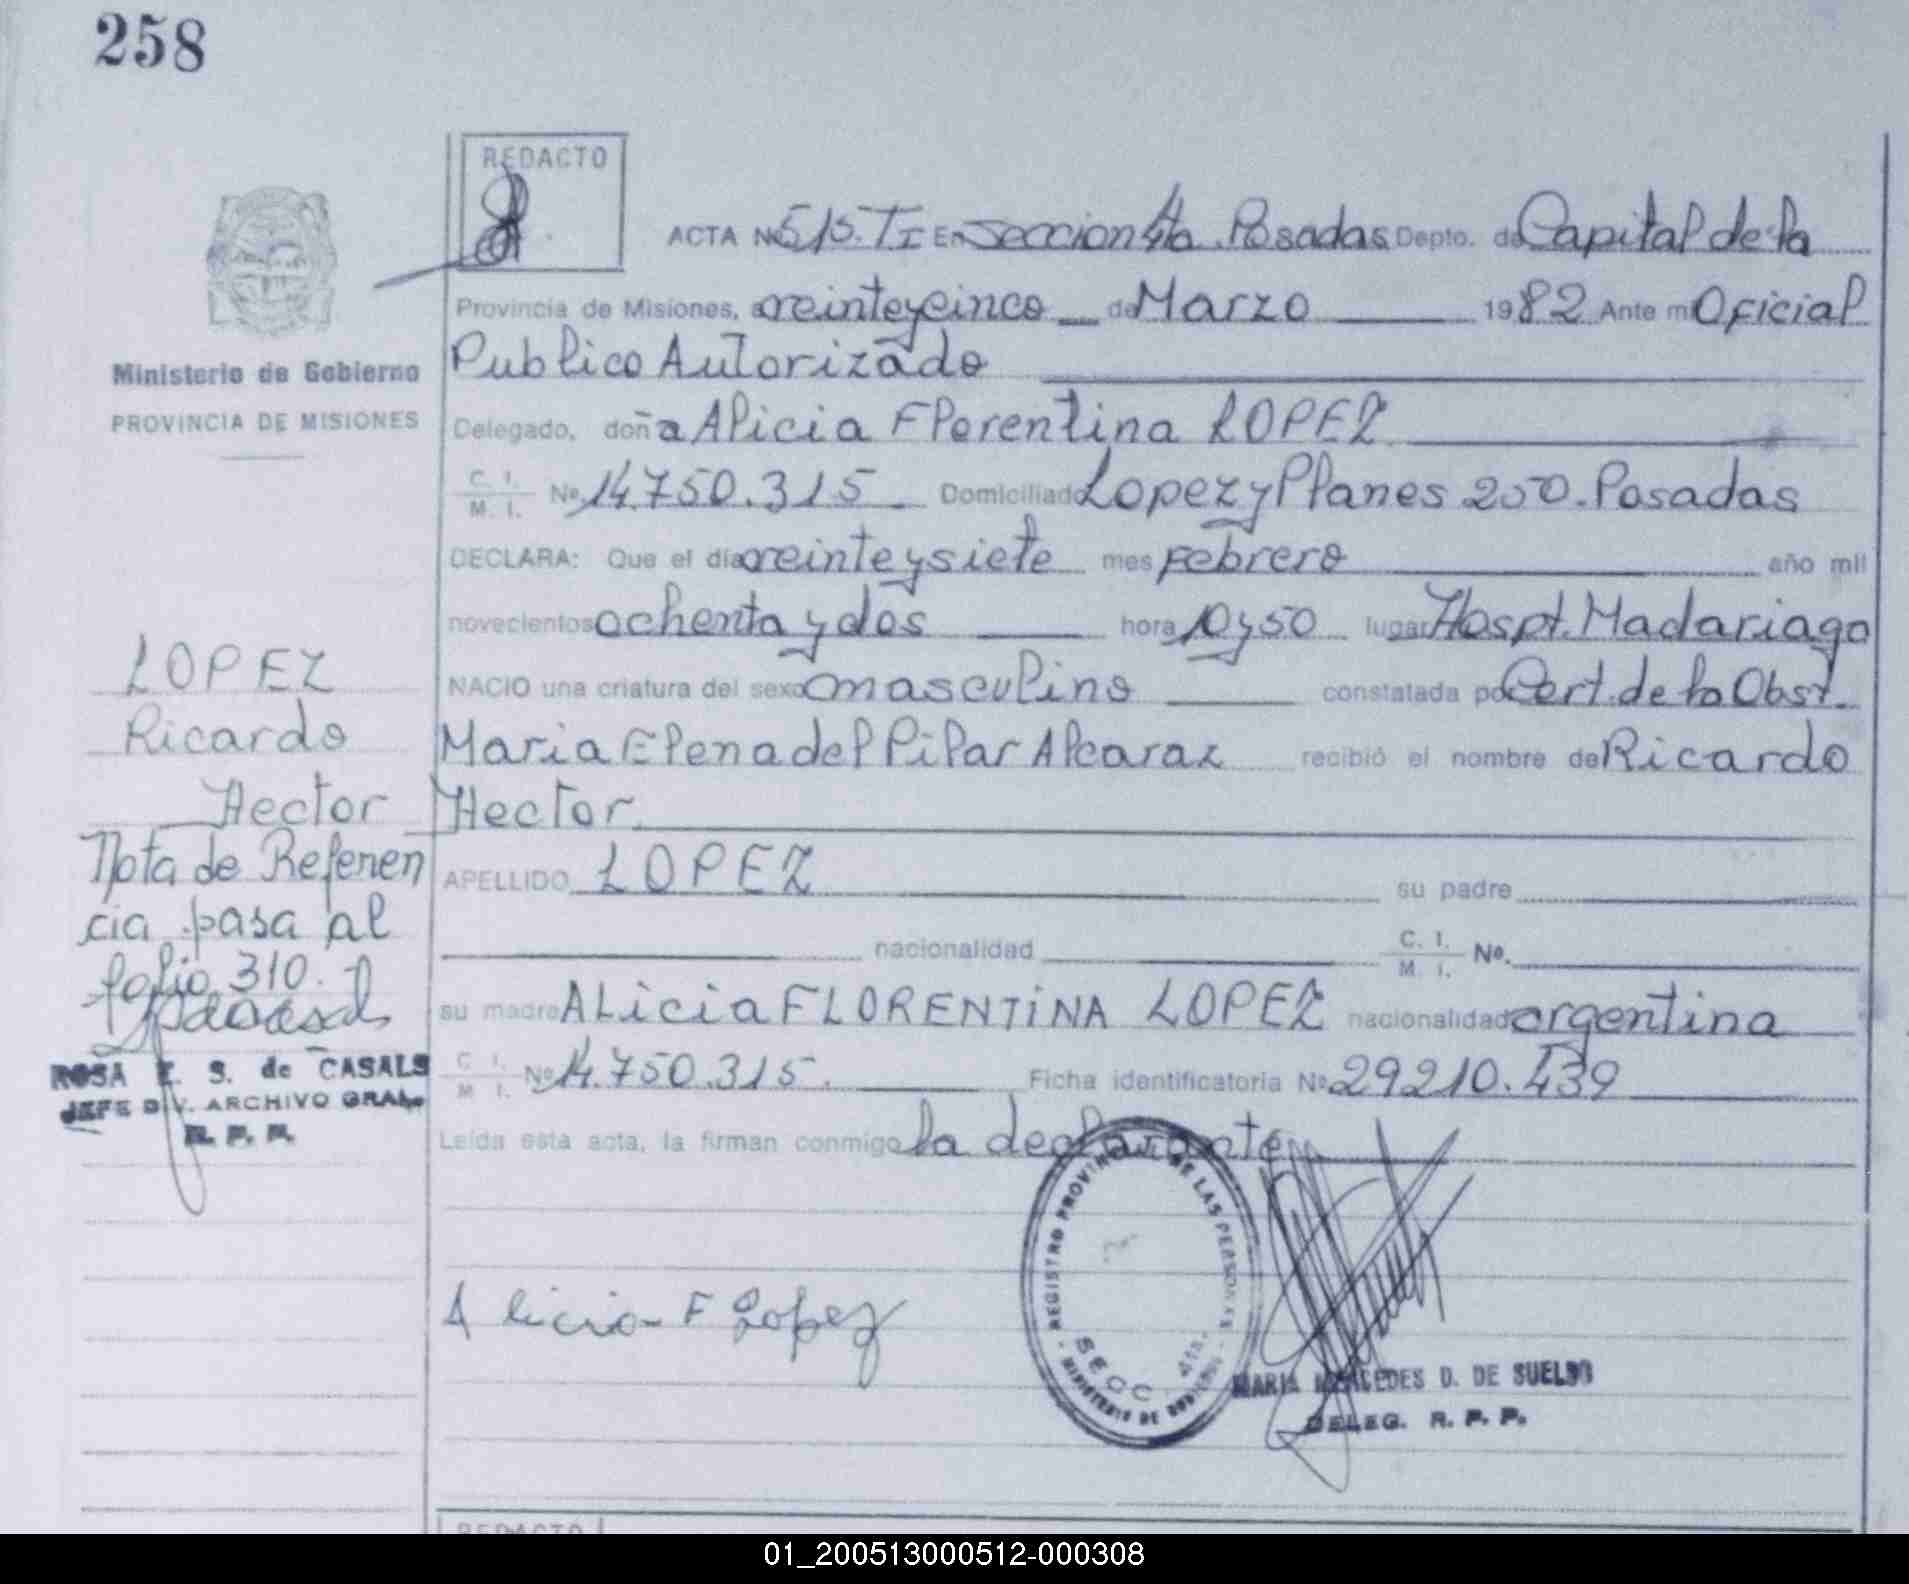 258
REDACTO
ACTA Nº 515. TI En Seccion 4ta. Posadas Depto. de Capital de la
Provincia de Misiones, a veinteycinco de Marzo 1982 Ante mi Oficial
Publico Autorizado
Ministerio de Gobierno
PROVINCIA DE MISIONES
Delegado, doña Alicia Florentina LOPEZ
C. I.
M. I. Nº 14.750.315 Domiciliado Lopez y Planes 250. Posadas
DECLARA: Que el día veinteysiete mes Febrero año mil
novecientos ochenta y dos hora 10y50 lugar Hospt. Madariaga
NACIO una criatura del sexo masculino constatada por Cert. de la Obst.
Maria Elena del Pilar Alcaraz recibió el nombre de Ricardo
Hector
APELLIDO LOPEZ su padre
nacionalidad C. I. M. I. Nº.
su madre ALiciA FLORENTiNA LOPEZ nacionalidad argentina
C. I.
M. I. Nº 14.750.315. Ficha identificatoria Nº 29210.439
Leída esta acta, la firman conmigo la declarante
LOPEZ
Ricardo
Hector
Nota de Referen
cia pasa al
folio 310.
ROSA E. S. de CASALS
JEFE DIV. ARCHIVO GRAL.
R. P. P.
Alicia F Lopez
REGISTRO PROVINCIAL DE LAS PERSONAS
MINISTERIO DE GOBIERNO
SECC. 4ta.
MARIA MERCEDES D. DE SUELDO
DELEG. R. P. P.
REDACTO
01_200513000512-000308